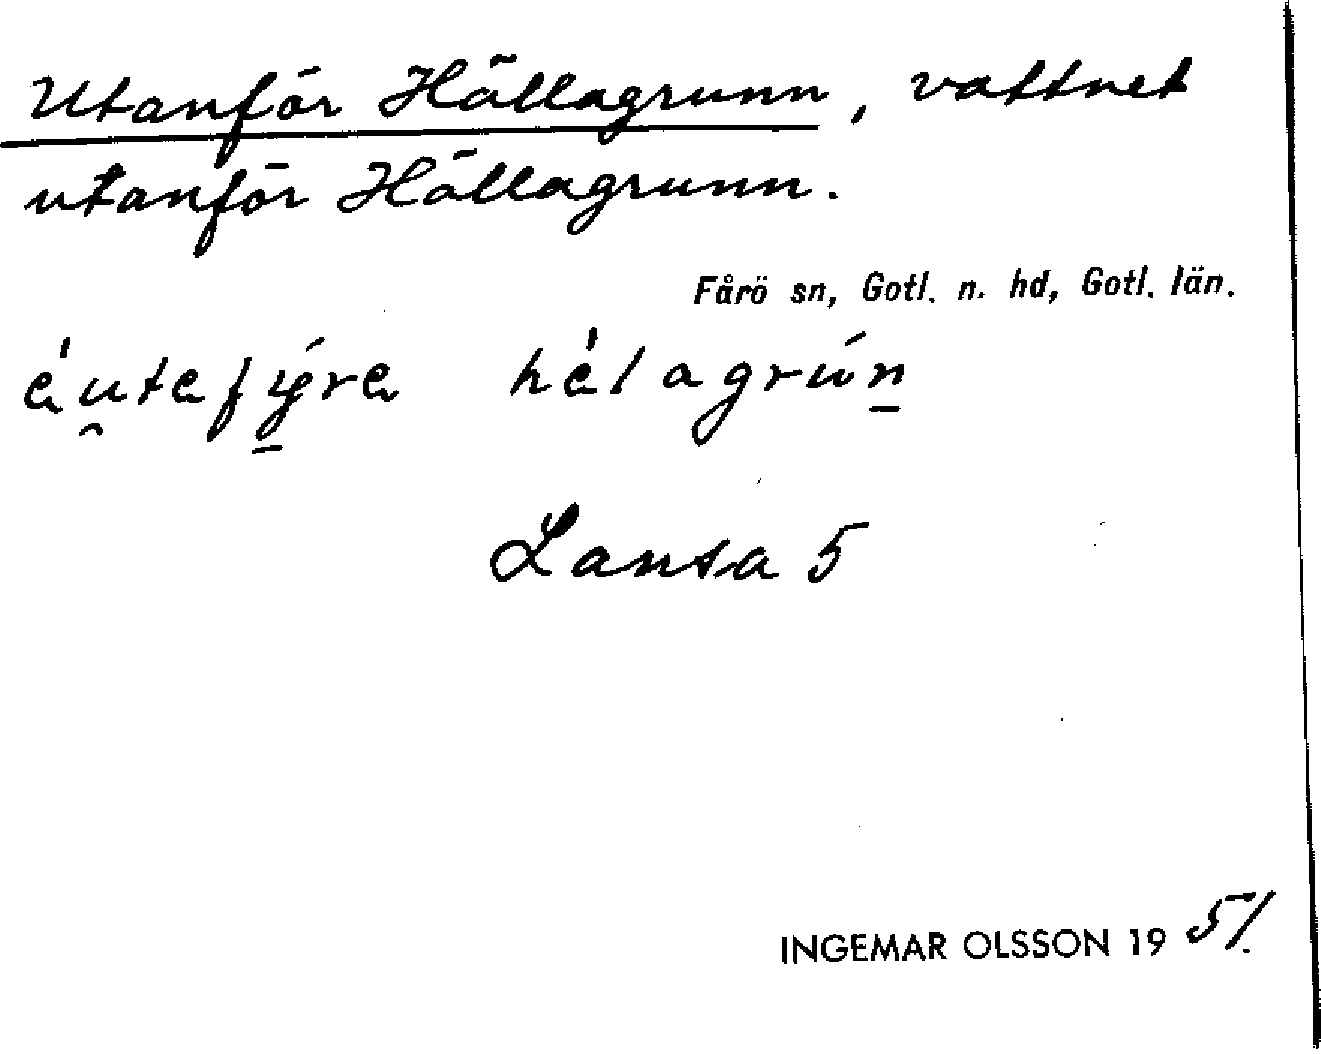 Utanför Hällagrunn, vattnet
utanför Hällagrunn.
Fårö sn, Gotl. n. hd, Gotl. län.
éu̯tefý̱re hélagrún̲
Lansa 5
INGEMAR OLSSON 19 51.